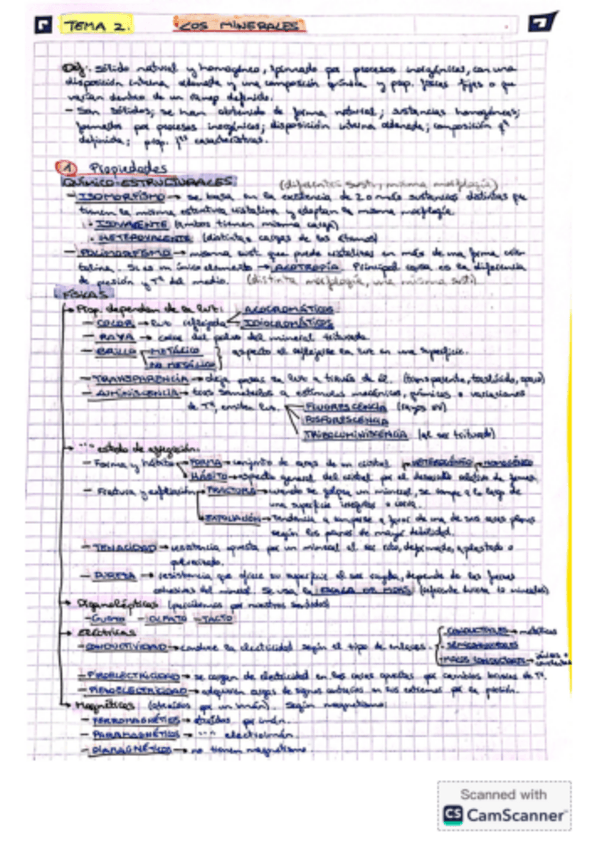 TEMA 2. LOS MINERALES
Def: sólido natural y homogéneo, formado por procesos inorgánicos, con una
disposición interna ordenada y una composición química y prop. físicas fijas o que
varían dentro de un rango definido.
- Son sólidos; se han obtenido de forma natural; sustancias homogéneas;
formados por procesos inorgánicos; disposición interna ordenada; composición qª
definida; prop. características.
1 Propiedades
QUÍMICO-ESTRUCTURALES (diferentes sust, misma morfología)
- ISOMORFISMO → se basa en la existencia de 2 o más sustancias distintas que
tienen la misma estructura cristalina y adoptan la misma morfología.
• ISOVALENTE (ambos tienen misma carga)
• HETEROVALENTE (distintas cargas de los átomos)
- POLIMORFISMO → misma sust. que puede cristalizar en más de una forma cris-
talina. Si es un único elemento → ALOTROPÍA. Principal causa es la diferencia
de presión y Tª del medio. (distinta morfología, una misma sust)
FÍSICAS
→ Prop. dependen de la luz: ALOCROMÁTICOS
- COLOR → luz reflejada IDIOCROMÁTICOS
- RAYA → color del polvo del mineral triturado.
- BRILLO METÁLICO aspecto al reflejarse la luz en una superficie.
NO METÁLICO
- TRANSPARENCIA → deja pasar la luz a través de él. (transparente, traslúcido, opaco)
- LUMINISCENCIA → tras someterlos a estímulos mecánicos, químicos o variaciones
de Tª, emiten luz. FLUORESCENCIA (rayos UV)
FOSFORESCENCIA
TRIBOLUMINISCENCIA (al ser triturado)
→ " " estado de agregación:
- Forma y hábito FORMA → conjunto de caras de un cristal HETEROGÉNEO HOMOGÉNEO
HÁBITO → aspecto general del cristal por el desarrollo relativo de formas
- Fractura y exfoliación FRACTURA → cuando se golpea un mineral, se rompe a lo largo de
una superficie irregular o curva.
EXFOLIACIÓN → Tendencia a romperse a favor de una de sus caras planas
según los planos de mayor debilidad.
- TENACIDAD → resistencia opuesta por un mineral al ser roto, deformado, aplastado o
pulverizado.
- DUREZA → resistencia que ofrece su superficie al ser rayada, depende de las fuerzas
cohesivas del mineral. Se usa la ESCALA DE MOHS
→ Organolépticas (percibimos por nuestros sentidos)
- GUSTO - OLFATO - TACTO
→ Eléctricas CONDUCTORES → metálicos
- CONDUCTIVIDAD → conduce la electricidad según el tipo de enlaces. • SEMICONDUCTORES
MALOS CONDUCTORES → iónicos o
covalentes
- PIROELECTRICIDAD → se cargan de electricidad en las caras opuestas por cambios de Tª.
- PIEZOELECTRICIDAD → adquieren cargas de signos contrarios en sus extremos por la presión.
→ Magnéticas (atraídos por un imán). Según magnetismo:
- FERROMAGNÉTICOS → atraídos por imán.
- PARAMAGNÉTICOS → " " electroimán.
- DIAMAGNÉTICOS → no tienen magnetismo.
Scanned with
CS CamScanner